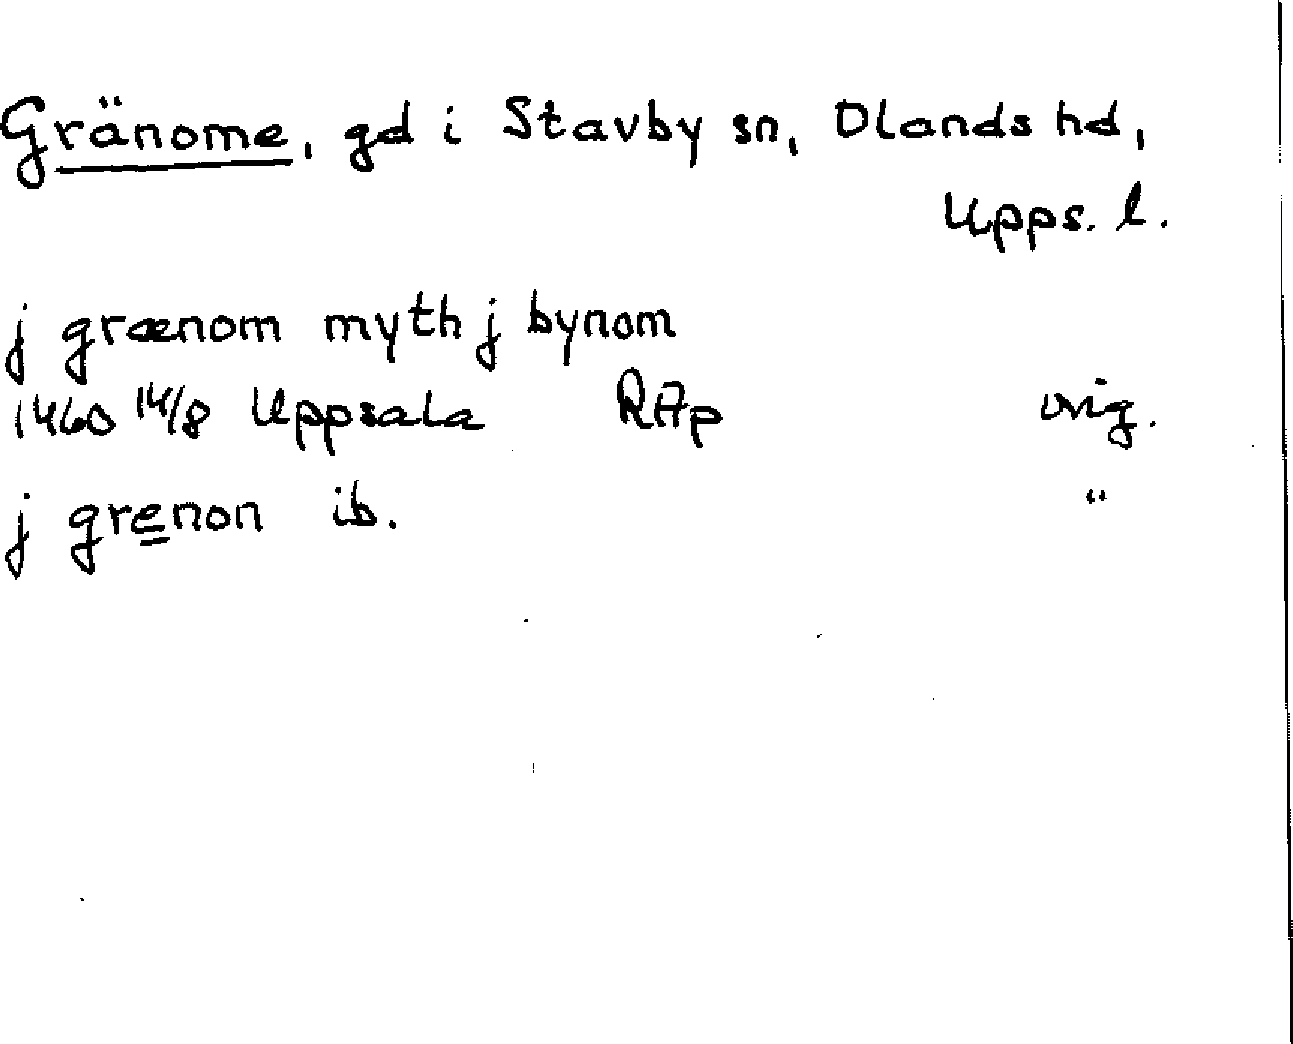 Gränome, gd i Stavby sn, Olands hd,
Upps. l.
j grænom myth j bynom
1460 14/8 Uppsala RAp orig.
j grenon ib. "